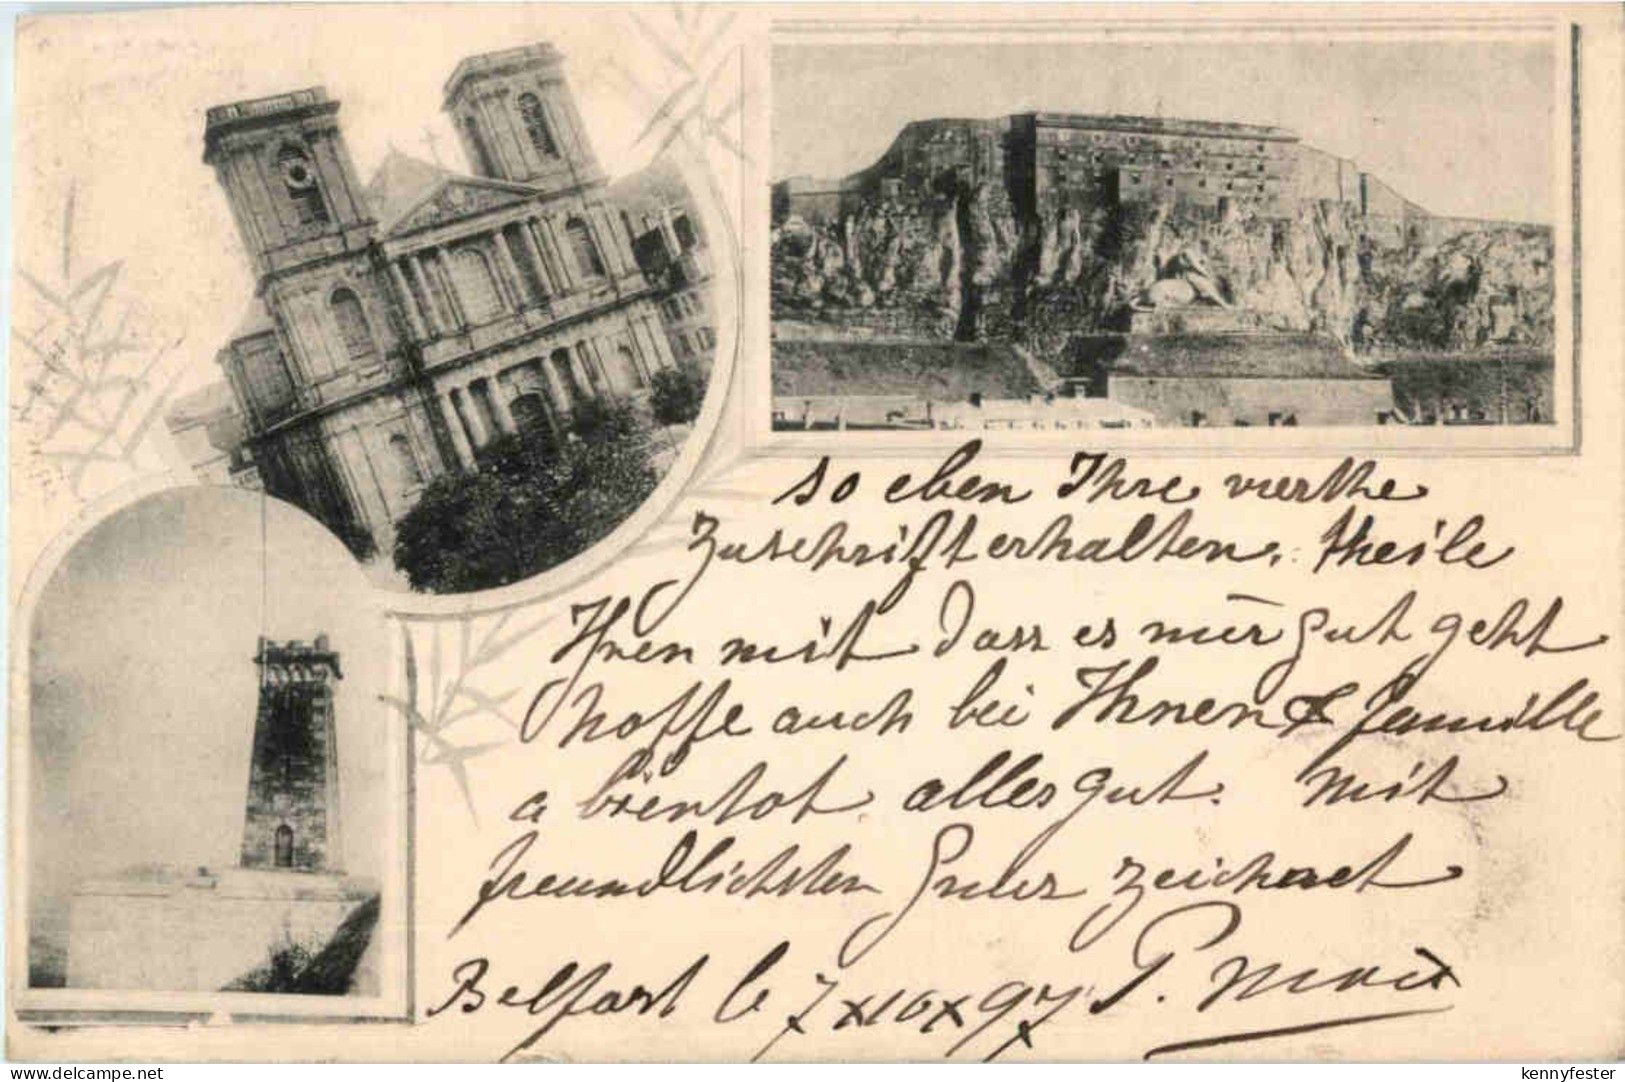 so eben Ihre werthe
Zuschrift erhalten. theile
Ihnen mit dass es mir gut geht
hoffe auch bei Ihnen & famille
a bientot alles gut. Mit
freundlichsten Gruss zeichnet
Belfort le 7x10x97 P.
kennyfester